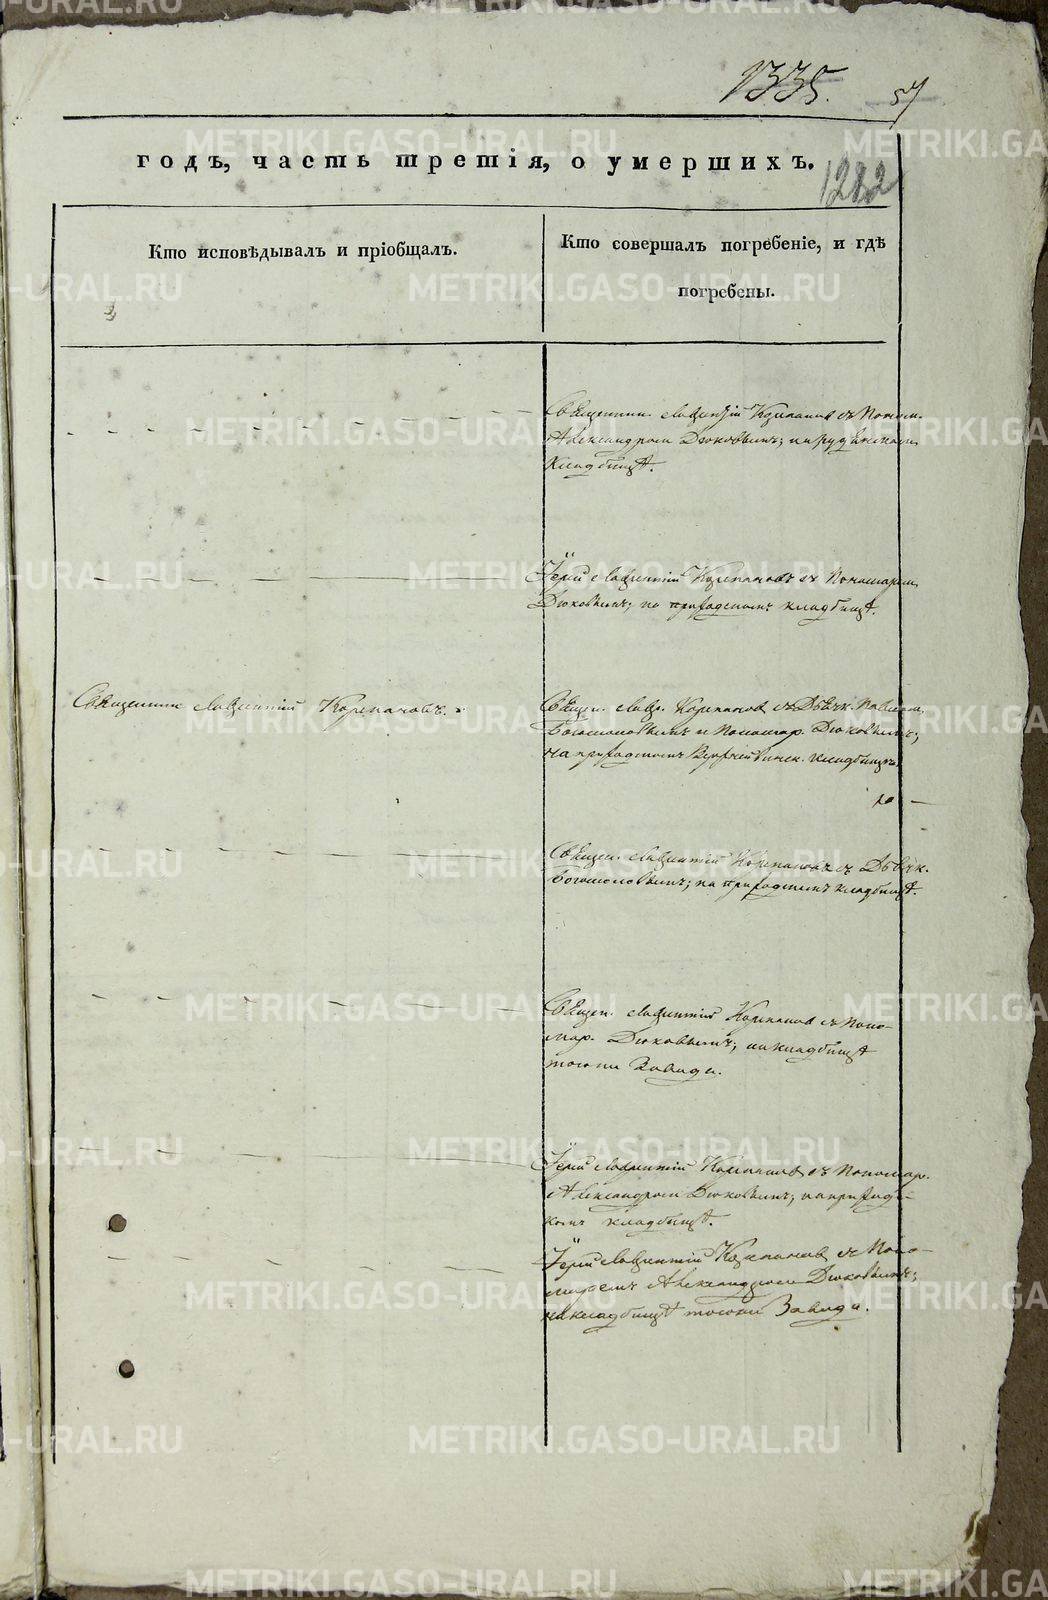 1335. 57
годъ, часть третія, о умершихъ.
1282
Кто исповѣдывалъ и пріобщалъ.
Кто совершалъ погребеніе, и гдѣ
погребены.
Священни. Лаврентій Корепановъ съ Поном.
Александромъ Дюковымъ; на
кладбищѣ.
Іерей Лаврентій Корепановъ съ Пономаремъ
Дюковымъ; на приходскомъ кладбищѣ.
Священникъ Лаврентій Корепановъ.
Священ. Лавр. Корепановъ съ Дьячк. Павломъ
Богомоловымъ и Пономар. Дюковымъ;
на приходскомъ кладбищѣ.
Священ. Лаврентій Корепановъ съ Дьячк.
Богомоловымъ; на приходскомъ кладбищѣ.
Священ. Лаврентій Корепановъ съ Поно-
мар. Дюковымъ; на кладбищѣ
того же Завода.
Іерей Лаврентій Корепановъ съ Пономар.
Александромъ Дюковымъ; на приход-
комъ кладбищѣ.
Іерей Лаврентій Корепановъ съ Поно-
маремъ Александромъ Дюковымъ;
на кладбищѣ того же Завода.
METRIKI.GASO-URAL.RU